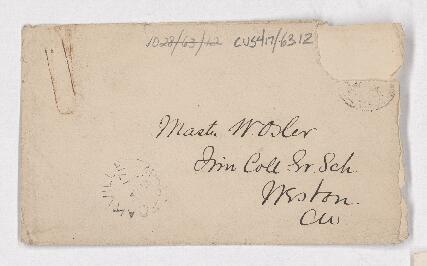 1028/63/12 CUS417/63.12
Mastr W. Osler
Trin Coll Gr. Sch.
Weston.
CW